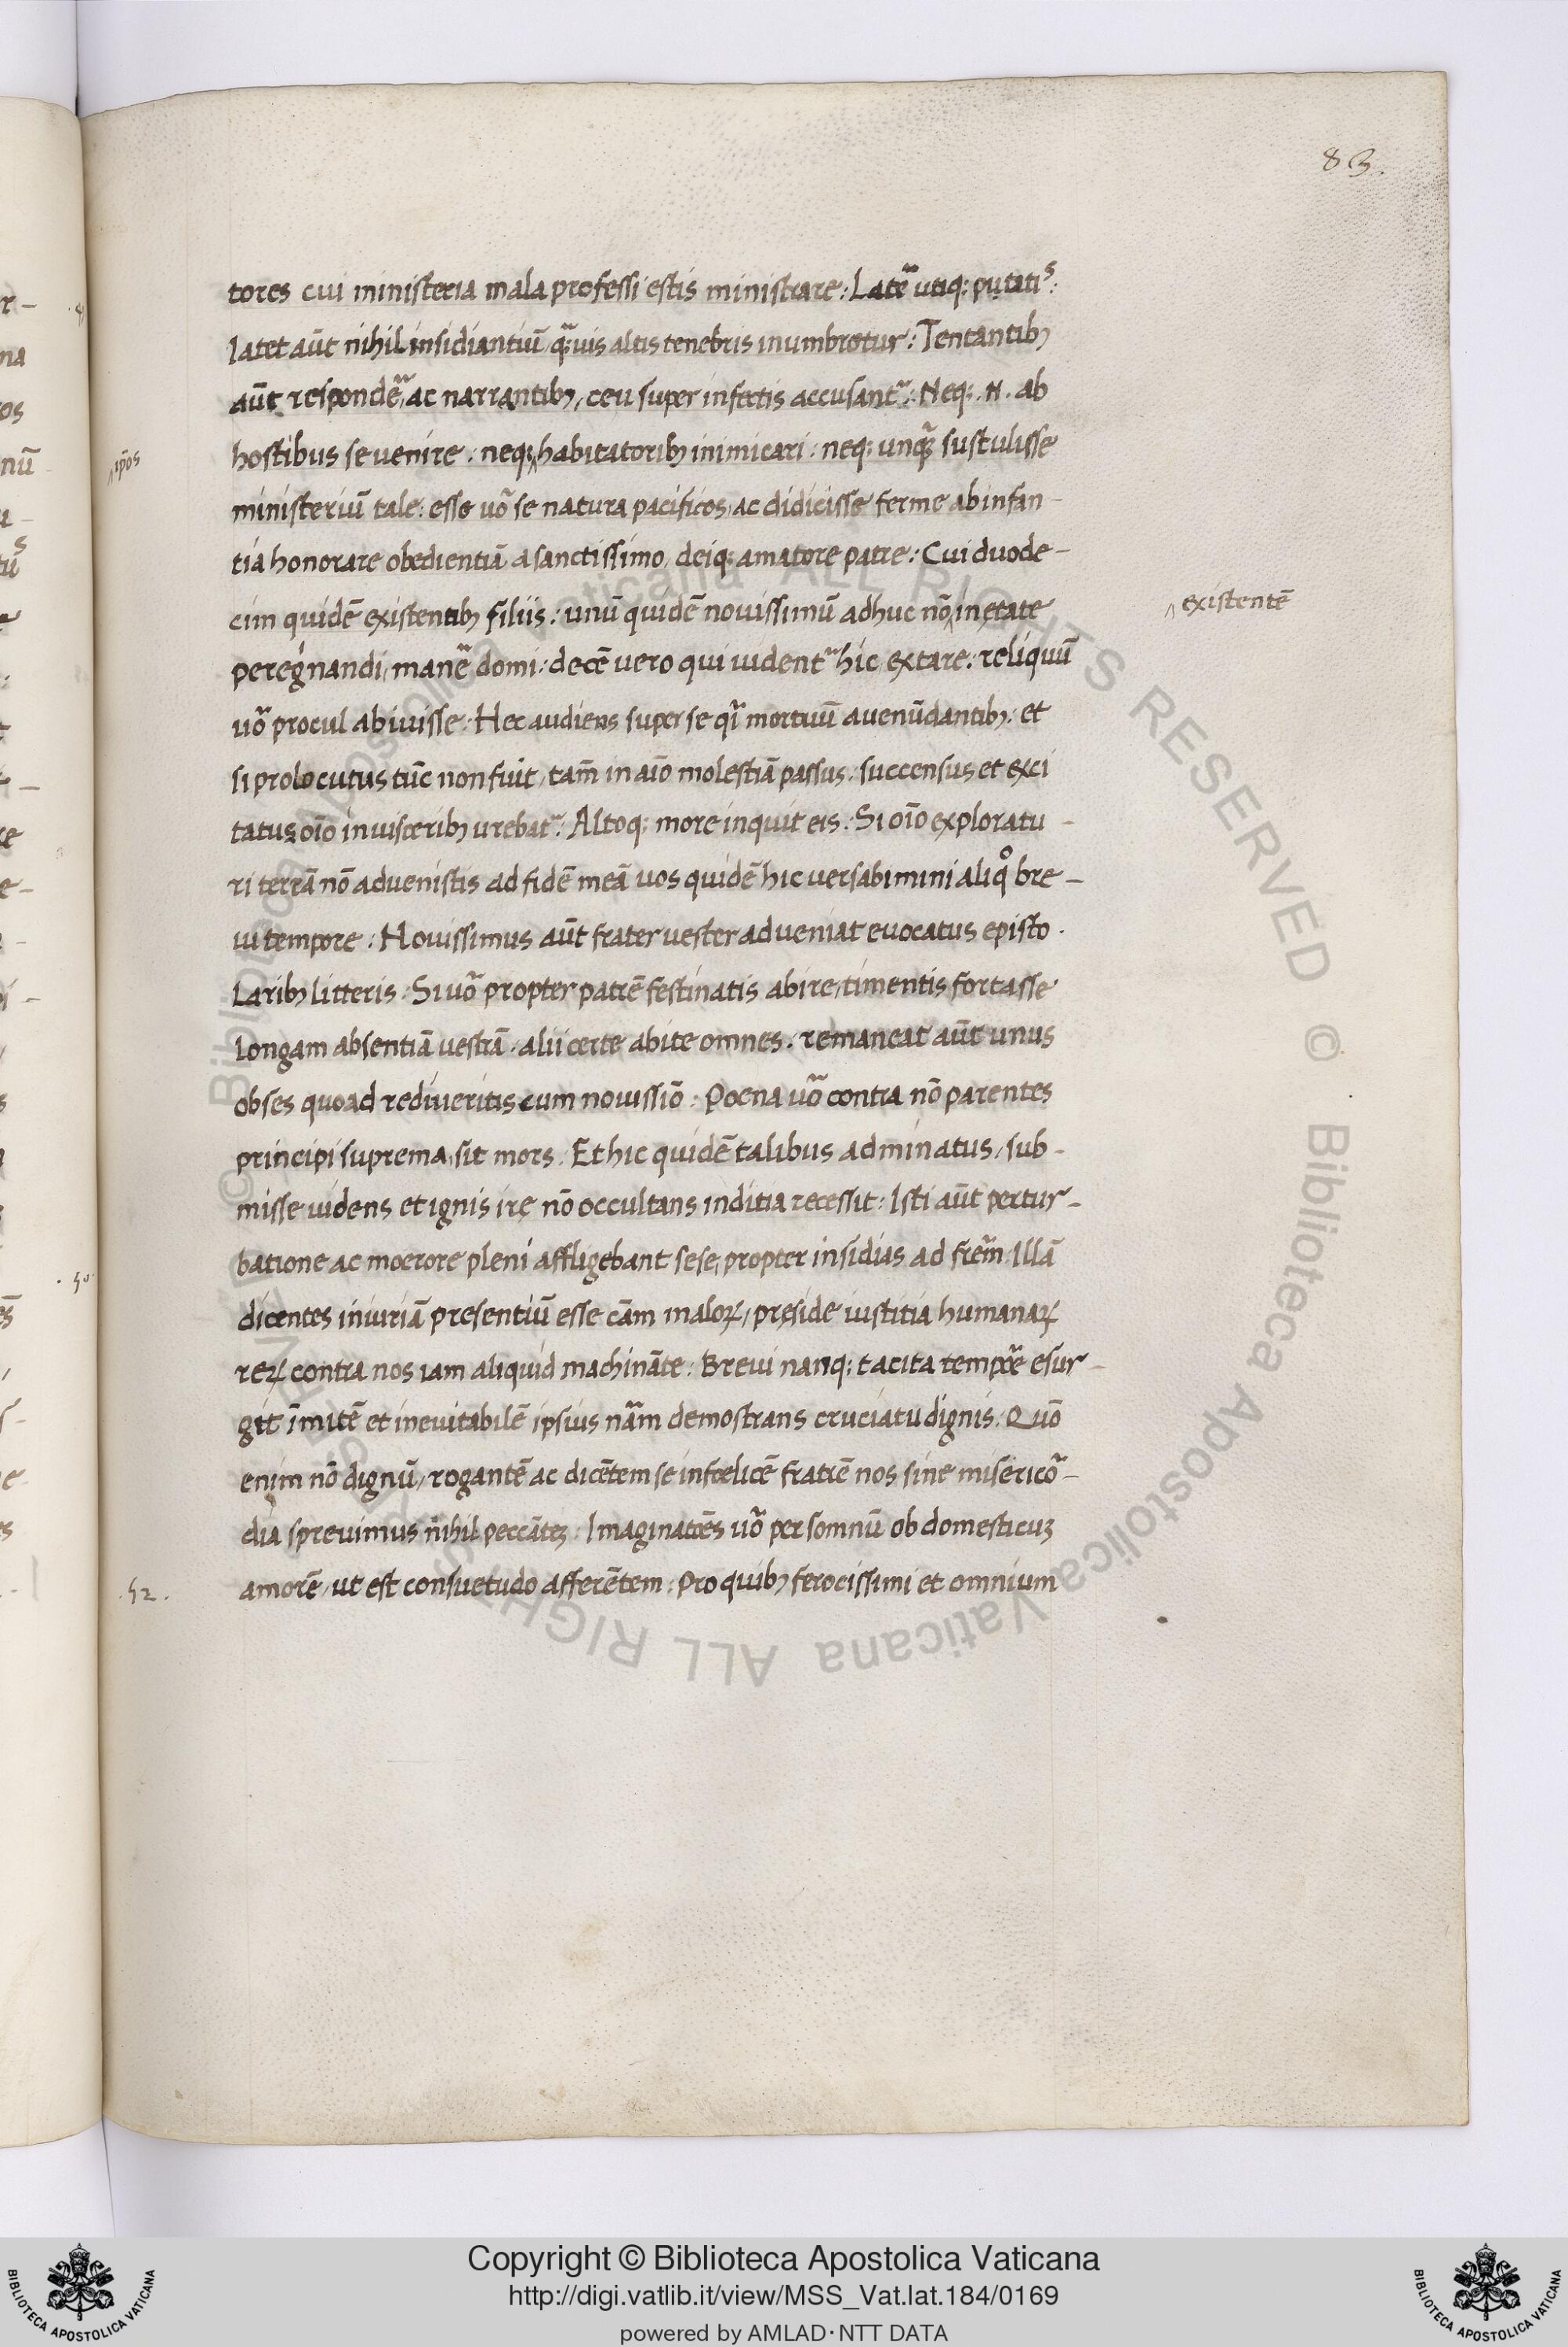 83.
tores cui ministeria mala professi estis ministrare: Latē utiq; putatis:
latet aūt nihil insidiantiū q̄uis altis tenebris inumbrotur: Tentantibꝫ
aūt respondē, ac narrantibꝫ, ceu super infectis accusant̄: Neq; .N. ab
hostibus se venire: neq; ‸ habitatoribꝫ inimicari: neq; unq̄ sustulisse
‸ ip̄os
ministeriū tale: esse uō se natura pacificos, ac didicisse ferme ab infan-
tia honorare obedientiā a sanctissimo, deiq; amatore patre: Cui duode-
cim quidē existentibꝫ filiis: unū quidē novissimū adhuc nō ‸ in etate
‸ existentē
peregrinandi, manē domi: decē vero qui vident̄ hic extare: reliquū
uō procul abivisse: Hec audiens super se q̄ mortuū avenūdantibꝫ: et
si prolocutus tūc non fuit, tam̄ in aīo molestiā passus: succensus et exci
tatus oīo in visceribꝫ urebat̄: Altoq; more inquit eis: Si oīo exploratu-
ri terrā nō advenistis ad fidē meā vos quidē hic versabimini aliqͦ bre-
vi tempore: Novissimus aūt frater vester adveniat evocatus episto-
laribꝫ litteris: Si uō propter patrē festinatis abire, timentis fortasse
longam absentiā vestrā, alii certe abite omnes: remaneat aūt unus
obses quoad rediveritis cum novissīo: Poena uō contra nō parentes
principi suprema, sit mors: Et hic quidē talibus adminatus, sub-
misse videns et ignis ire nō occultans inditia recessit: Isti aūt pertur-
batione ac moerore pleni affligebant sese, propter insidias ad frēm: Illā
. 50.
dicentes iniuriā presentiū esse cām maloꝝ, preside iustitia humanaꝝ
reꝝ contra nos iam aliquid machināte: Brevi nanq; tacita tempōe esur-
git īmitē et inevitabilē ipsius nām demostrans cruciatu dignis: Quō
enim nō dignū, rogantē ac dicētem se infoelicē fratrē nos sine misericō-
dia sprevimus n̄ihil peccātē: Imaginatiōēs uō per somnū ob domesticuꝫ
amorē, ut est consuetudo afferētem: Pro quibꝫ ferocissimi et omnium
. 52.
Copyright © Biblioteca Apostolica Vaticana
http://digi.vatlib.it/view/MSS_Vat.lat.184/0169
powered by AMLAD·NTT DATA
BIBLIOTECA APOSTOLICA VATICANA
BIBLIOTECA APOSTOLICA VATICANA